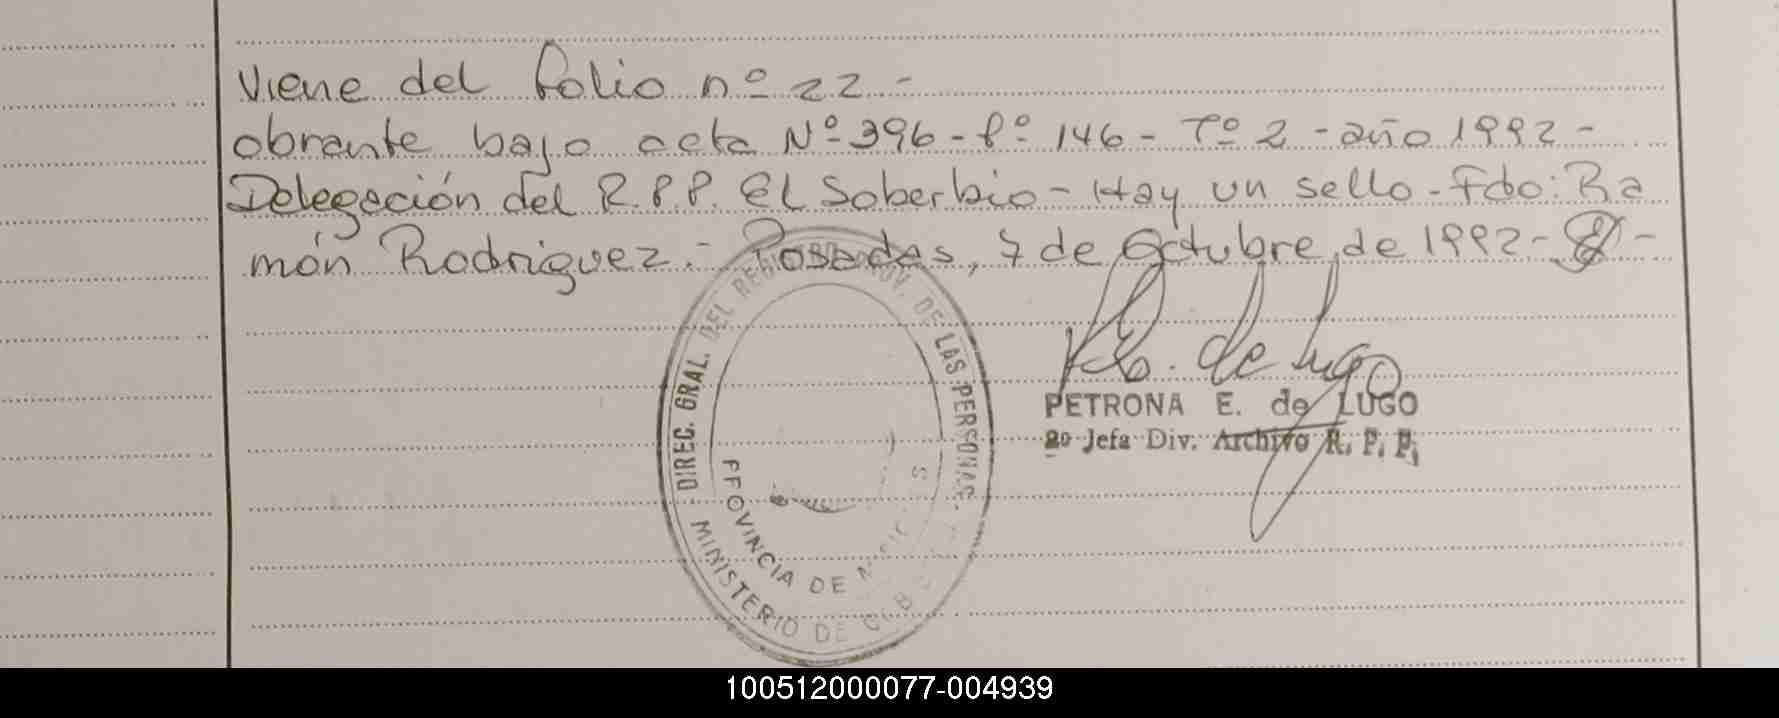 Viene del folio nº 22-
obrante bajo acta Nº 396-fº 146-Tº 2-año 1992-
Delegación del R.P.P. El Soberbio-Hay un sello-Fdo: Ra
món Rodriguez.- Posadas, 7 de Octubre de 1992-
de Lugo
PETRONA E. de LUGO
2º Jefa Div. Archivo R. P. P.
DIREC. GRAL. DEL REG. PROV. DE LAS PERSONAS
PROVINCIA DE
MINISTERIO DE
100512000077-004939